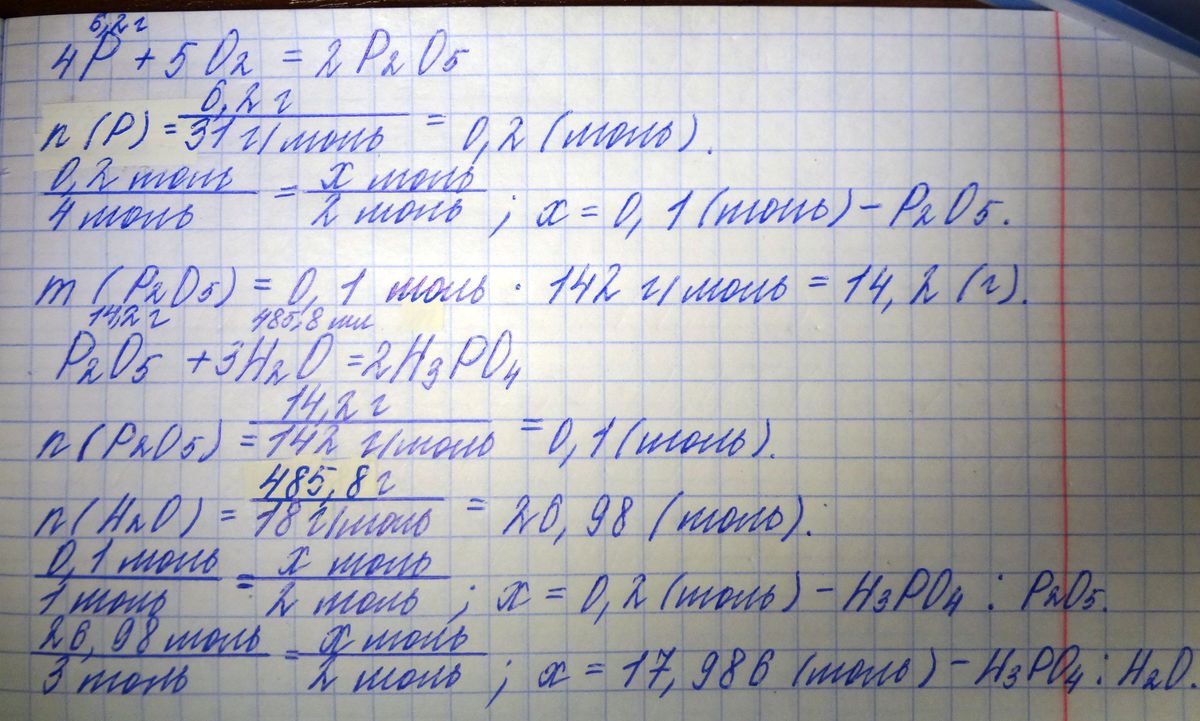 6,2 г
4P + 5O2 = 2P2O5
n(P) = 6,2 г / 31 г/моль = 0,2 (моль).
0,2 моль / 4 моль = x моль / 2 моль ; x = 0,1 (моль) – P2O5.
m (P2O5) = 0,1 моль · 142 г/моль = 14,2 (г).
14,2 г 485,8 мл
P2O5 + 3H2O = 2H3PO4
n(P2O5) = 14,2 г / 142 г/моль = 0,1 (моль).
n(H2O) = 485,8 г / 18 г/моль = 26,98 (моль).
0,1 моль / 1 моль = x моль / 2 моль ; x = 0,2 (моль) – H3PO4 : P2O5.
26,98 моль / 3 моль = x моль / 2 моль ; x = 17,986 (моль) – H3PO4 : H2O.